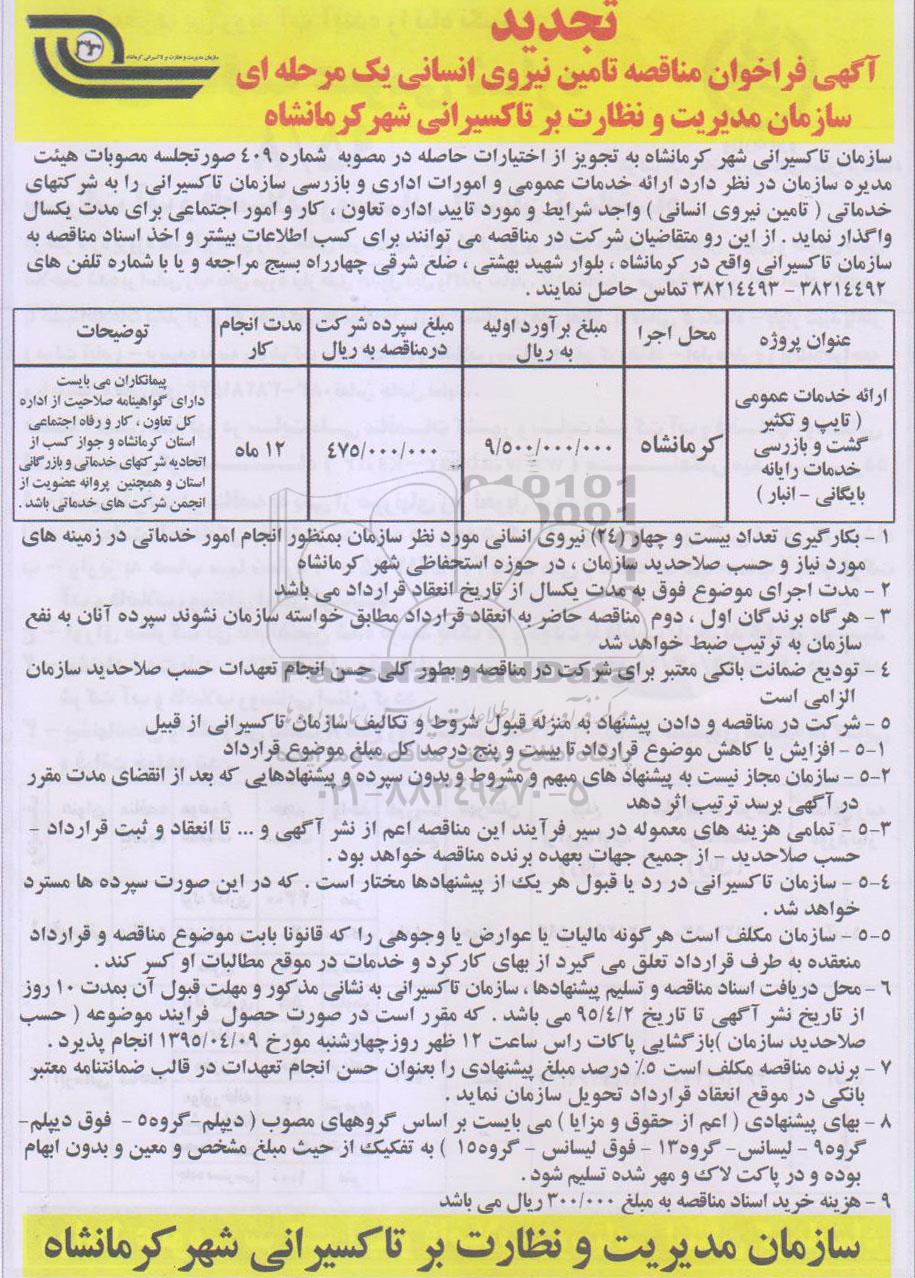 تجدید
آگهی فراخوان مناقصه تامین نیروی انسانی یک مرحله ای
سازمان مدیریت و نظارت بر تاکسیرانی شهر کرمانشاه
سازمان مدیریت و نظارت بر تاکسیرانی کرمانشاه
سازمان تاکسیرانی شهر کرمانشاه به تجویز از اختیارات حاصله در مصوبه شماره ۴۰۹ صورتجلسه مصوبات هیئت
مدیره سازمان در نظر دارد ارائه خدمات عمومی و امورات اداری و بازرسی سازمان تاکسیرانی را به شرکتهای
خدماتی ( تامین نیروی انسانی ) واجد شرایط و مورد تایید اداره تعاون ، کار و امور اجتماعی برای مدت یکسال
واگذار نماید . از این رو متقاضیان شرکت در مناقصه می توانند برای کسب اطلاعات بیشتر و اخذ اسناد مناقصه به
سازمان تاکسیرانی واقع در کرمانشاه ، بلوار شهید بهشتی ، ضلع شرقی چهارراه بسیج مراجعه و یا با شماره تلفن های
۳۸۲۱۴۴۹۲ – ۳۸۲۱۴۴۹۳ تماس حاصل نمایند .
عنوان پروژه
محل اجرا
مبلغ برآورد اولیه
به ریال
مبلغ سپرده شرکت
درمناقصه به ریال
مدت انجام
کار
توضیحات
ارائه خدمات عمومی
( تایپ و تکثیر
گشت و بازرسی
خدمات رایانه
بایگانی - انبار )
کرمانشاه
۹/۵۰۰/۰۰۰/۰۰۰
۴۷۵/۰۰۰/۰۰۰
۱۲ ماه
پیمانکاران می بایست
دارای گواهینامه صلاحیت از اداره
کل تعاون ، کار و رفاه اجتماعی
استان کرمانشاه و جواز کسب از
اتحادیه شرکهای خدماتی و بازرگانی
استان و همچنین پروانه عضویت از
انجمن شرکت های خدماتی باشد .
۱ - بکارگیری تعداد بیست و چهار (۲۴) نیروی انسانی مورد نظر سازمان بمنظور انجام امور خدماتی در زمینه های
مورد نیاز و حسب صلاحدید سازمان ، در حوزه استحفاظی شهر کرمانشاه
۲ - مدت اجرای موضوع فوق به مدت یکسال از تاریخ انعقاد قرارداد می باشد
۳ - هرگاه برندگان اول ، دوم مناقصه حاضر به انعقاد قرارداد مطابق خواسته سازمان نشوند سپرده آنان به نفع
سازمان به ترتیب ضبط خواهد شد
۴ - تودیع ضمانت بانکی معتبر برای شرکت در مناقصه و بطور کلی حسن انجام تعهدات حسب صلاحدید سازمان
الزامی است
۵ - شرکت در مناقصه و دادن پیشنهاد به منزله قبول شروط و تکالیف سازمان تاکسیرانی از قبیل
۵-۱ - افزایش یا کاهش موضوع قرارداد تا بیست و پنج درصد کل مبلغ موضوع قرارداد
۵-۲ - سازمان مجاز نیست به پیشنهاد های مبهم و مشروط و بدون سپرده و پیشنهادهایی که بعد از انقضای مدت مقرر
در آگهی برسد ترتیب اثر دهد
۵-۳ - تمامی هزینه های معموله در سیر فرآیند این مناقصه اعم از نشر آگهی و ... تا انعقاد و ثبت قرارداد -
حسب صلاحدید - از جمیع جهات بعهده برنده مناقصه خواهد بود .
۵-۴ - سازمان تاکسیرانی در رد یا قبول هر یک از پیشنهادها مختار است . که در این صورت سپرده ها مسترد
خواهد شد .
۵-۵ - سازمان مکلف است هر گونه مالیات یا عوارض یا وجوهی را که قانونا بابت موضوع مناقصه و قرارداد
منعقده به طرف قرارداد تعلق می گیرد از بهای کارکرد و خدمات در موقع مطالبات او کسر کند .
۶ - محل دریافت اسناد مناقصه و تسلیم پیشنهادها ، سازمان تاکسیرانی به نشانی مذکور و مهلت قبول آن بمدت ۱۰ روز
از تاریخ نشر آگهی تا تاریخ ۹۵/۴/۲ می باشد . که مقرر است در صورت حصول فرایند موضوعه ( حسب
صلاحدید سازمان )بازگشایی پاکات راس ساعت ۱۲ ظهر روزچهارشنبه مورخ ۱۳۹۵/۰۴/۰۹ انجام پذیرد .
۷ - برنده مناقصه مکلف است ۵٪ درصد مبلغ پیشنهادی را بعنوان حسن انجام تعهدات در قالب ضمانتنامه معتبر
بانکی در موقع انعقاد قرارداد تحویل سازمان نماید .
۸ - بهای پیشنهادی ( اعم از حقوق و مزایا ) می بایست بر اساس گروههای مصوب ( دیپلم- گروه۵ - فوق دیپلم-
گروه۹ - لیسانس- گروه۱۳ - فوق لیسانس - گروه۱۵ ) به تفکیک از حیث مبلغ مشخص و معین و بدون ابهام
بوده و در پاکت لاک و مهر شده تسلیم شود .
۹ - هزینه خرید اسناد مناقصه به مبلغ ۳۰۰/۰۰۰ ریال می باشد
سازمان مدیریت و نظارت بر تاکسیرانی شهر کرمانشاه
ParsNamadData
۰۲۱-۸۸۳۴۹۶۷۰-۵